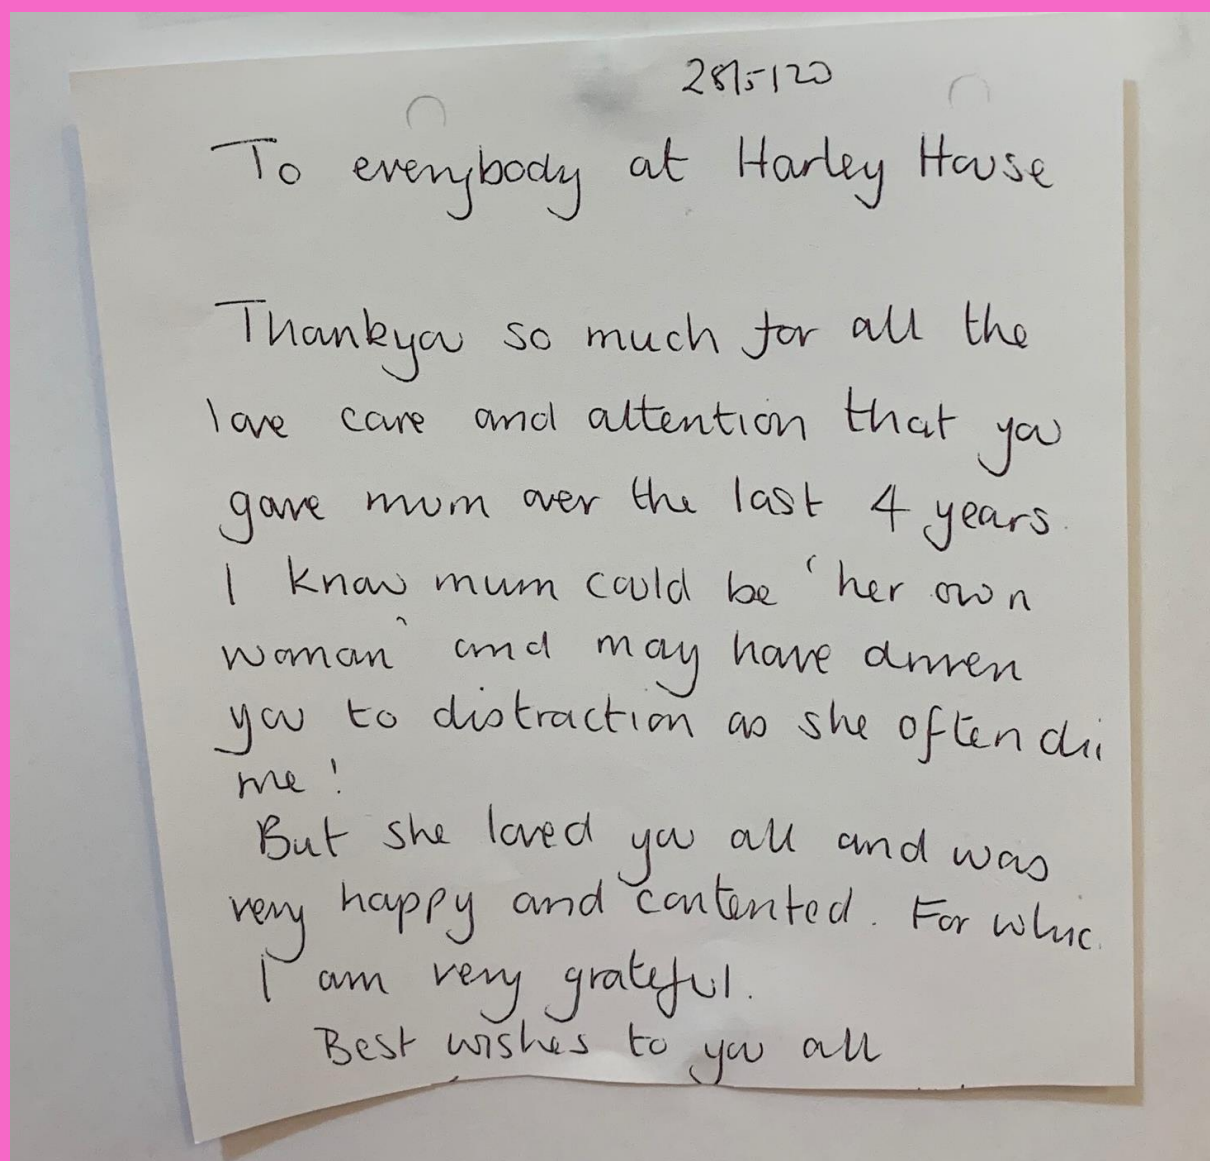 28/5/20
To everybody at Harley House
Thankyou so much for all the
love care and attention that you
gave mum over the last 4 years.
I know mum could be 'her own
woman' and may have driven
you to distraction as she often did
me!
But she loved you all and was
very happy and contented. For whic
I am very grateful.
Best wishes to you all